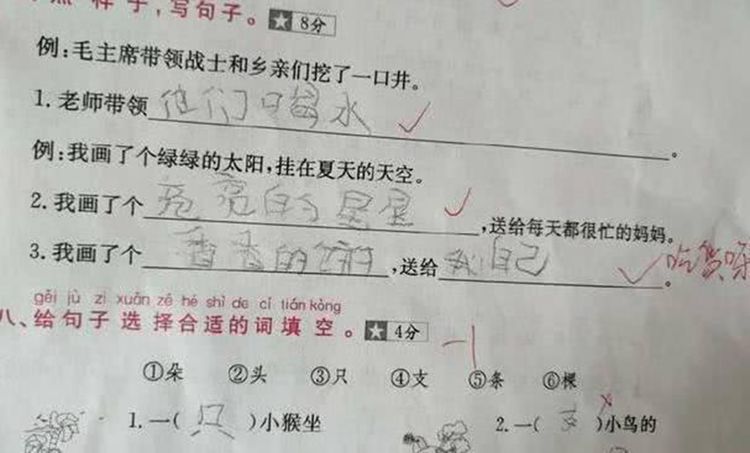 样子,写句子。★8分
例:毛主席带领战士和乡亲们挖了一口井。
1.老师带领他们喝水。
例:我画了个绿绿的太阳,挂在夏天的天空。
2.我画了个亮亮的星星,送给每天都很忙的妈妈。
3.我画了个香香的饼,送给我自己。吃货呀
gěi jù zi xuǎn zé hé shì de cí tián kòng
八、给句子选择合适的词填空。★4分 -1
①朵 ②头 ③只 ④支 ⑤条 ⑥棵
1.一(只)小猴坐 2.一(支)小鸟的